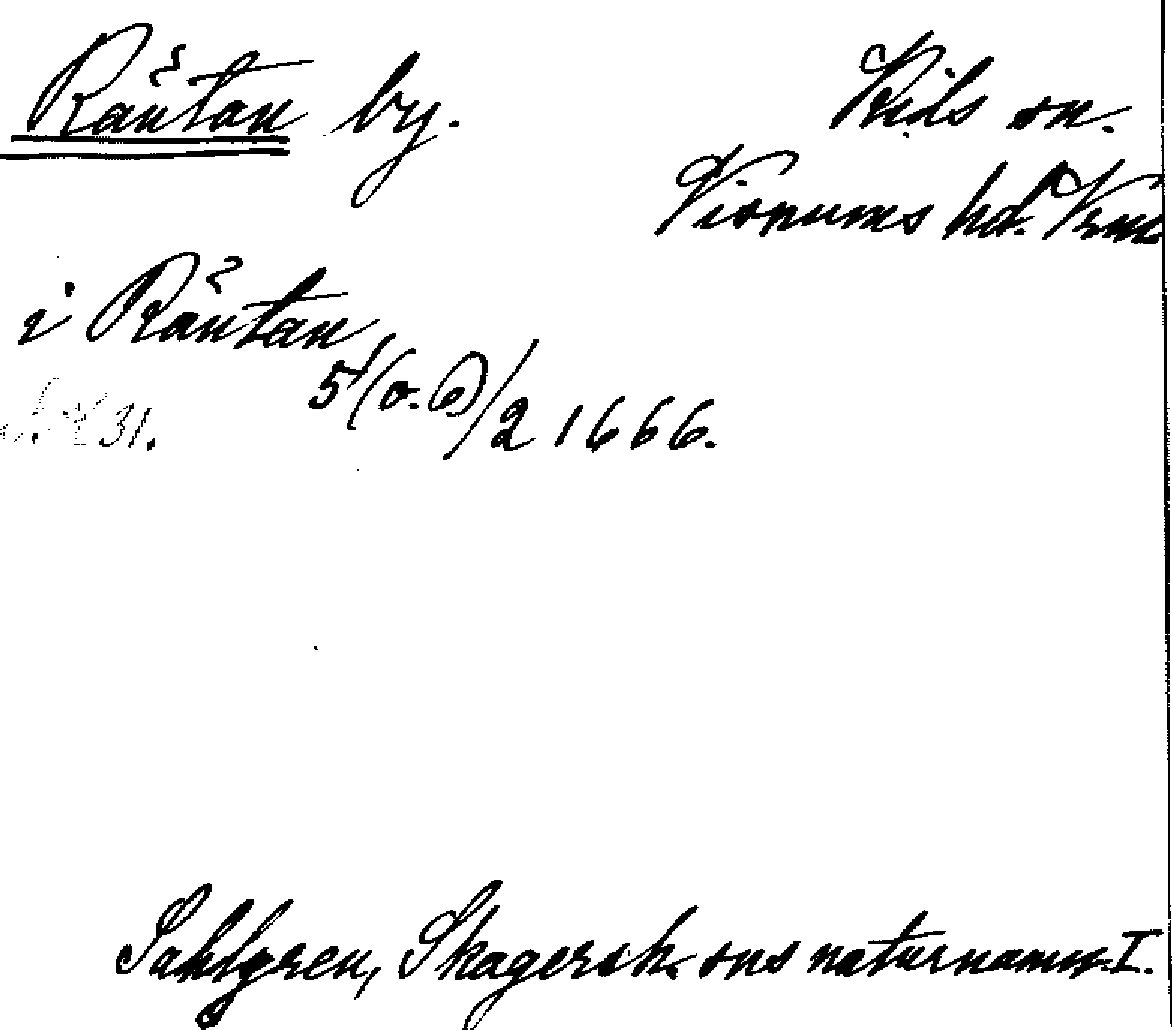 Räntan by. Visnums
Kils sn.
Visnums hd. Vrml
i Räntan
5/(o. 6)/2 1666.
31.
Sahlgren, Skagersh. sns naturnamn I.